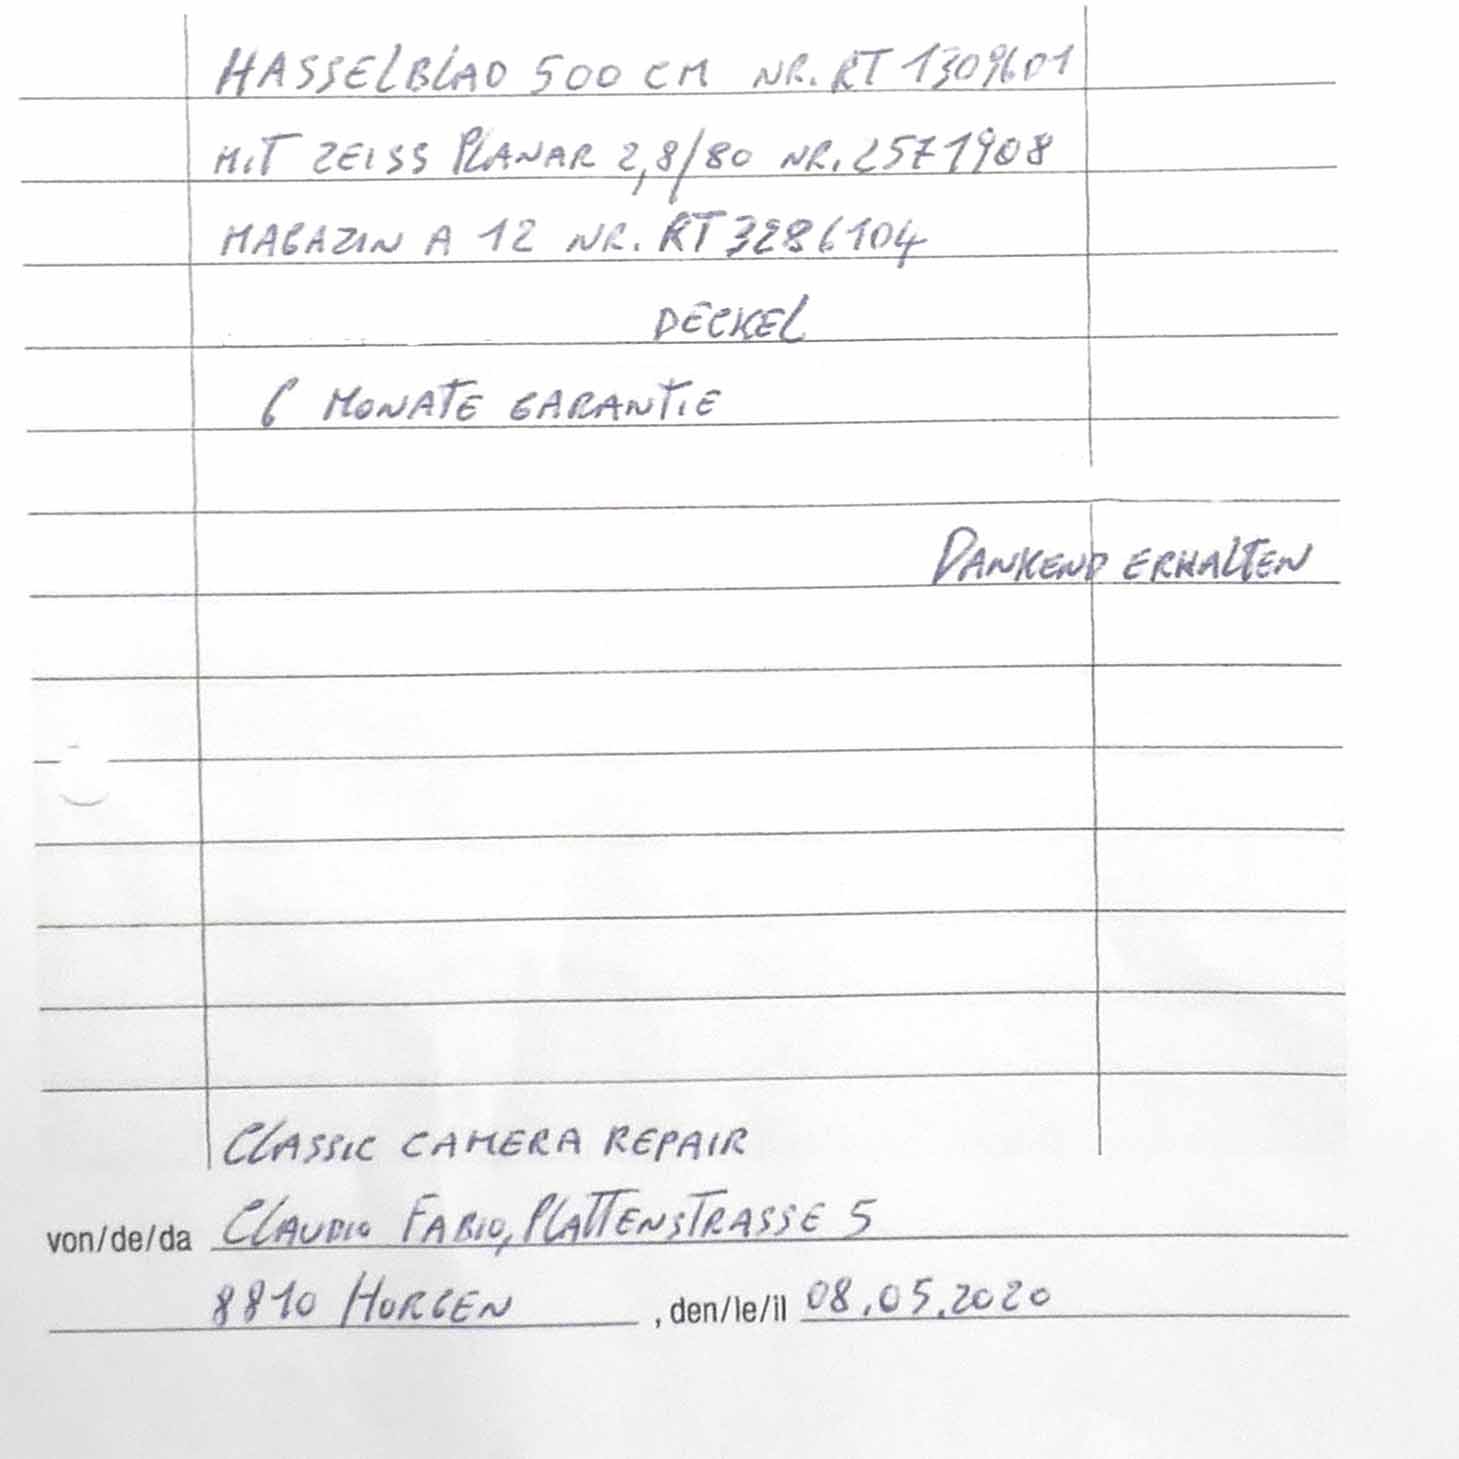 HASSELBLAD 500 CM NR. RT 1309601
MIT ZEISS PLANAR 2,8/80 NR. 2571908
MAGAZIN A 12 NR. RT 3286104
DECKEL
6 MONATE GARANTIE
DANKEND ERHALTEN
CLASSIC CAMERA REPAIR
von/de/da CLAUDIO FABIO, PLATTENSTRASSE 5
8810 HORGEN , den/le/il 08.05.2020